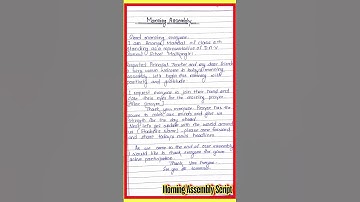 Morning Assembly
Good morning everyone
I am Ananya of class 6th
standing as a representative of D.A.V
School
Respected Principal, Teacher and my dear friends
I warm welcome to today's morning
assembly. Let's begin this morning with
positivity and gratitude
I request everyone to join their hand and
close their eyes for the morning prayer.
After (prayer)
Thank you everyone. Prayer has the
power to calm our minds and give us
strength for the day ahead.
Now let's get update with the world around
us (Student's name) please come forward
and share today's news headlines
As we come to the end of our assembly
I would like to thank everyone for your
active participation.
Thank you everyone
Morning Assembly Script